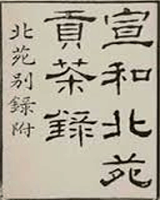 宣和北苑
貢茶錄
北苑别録附